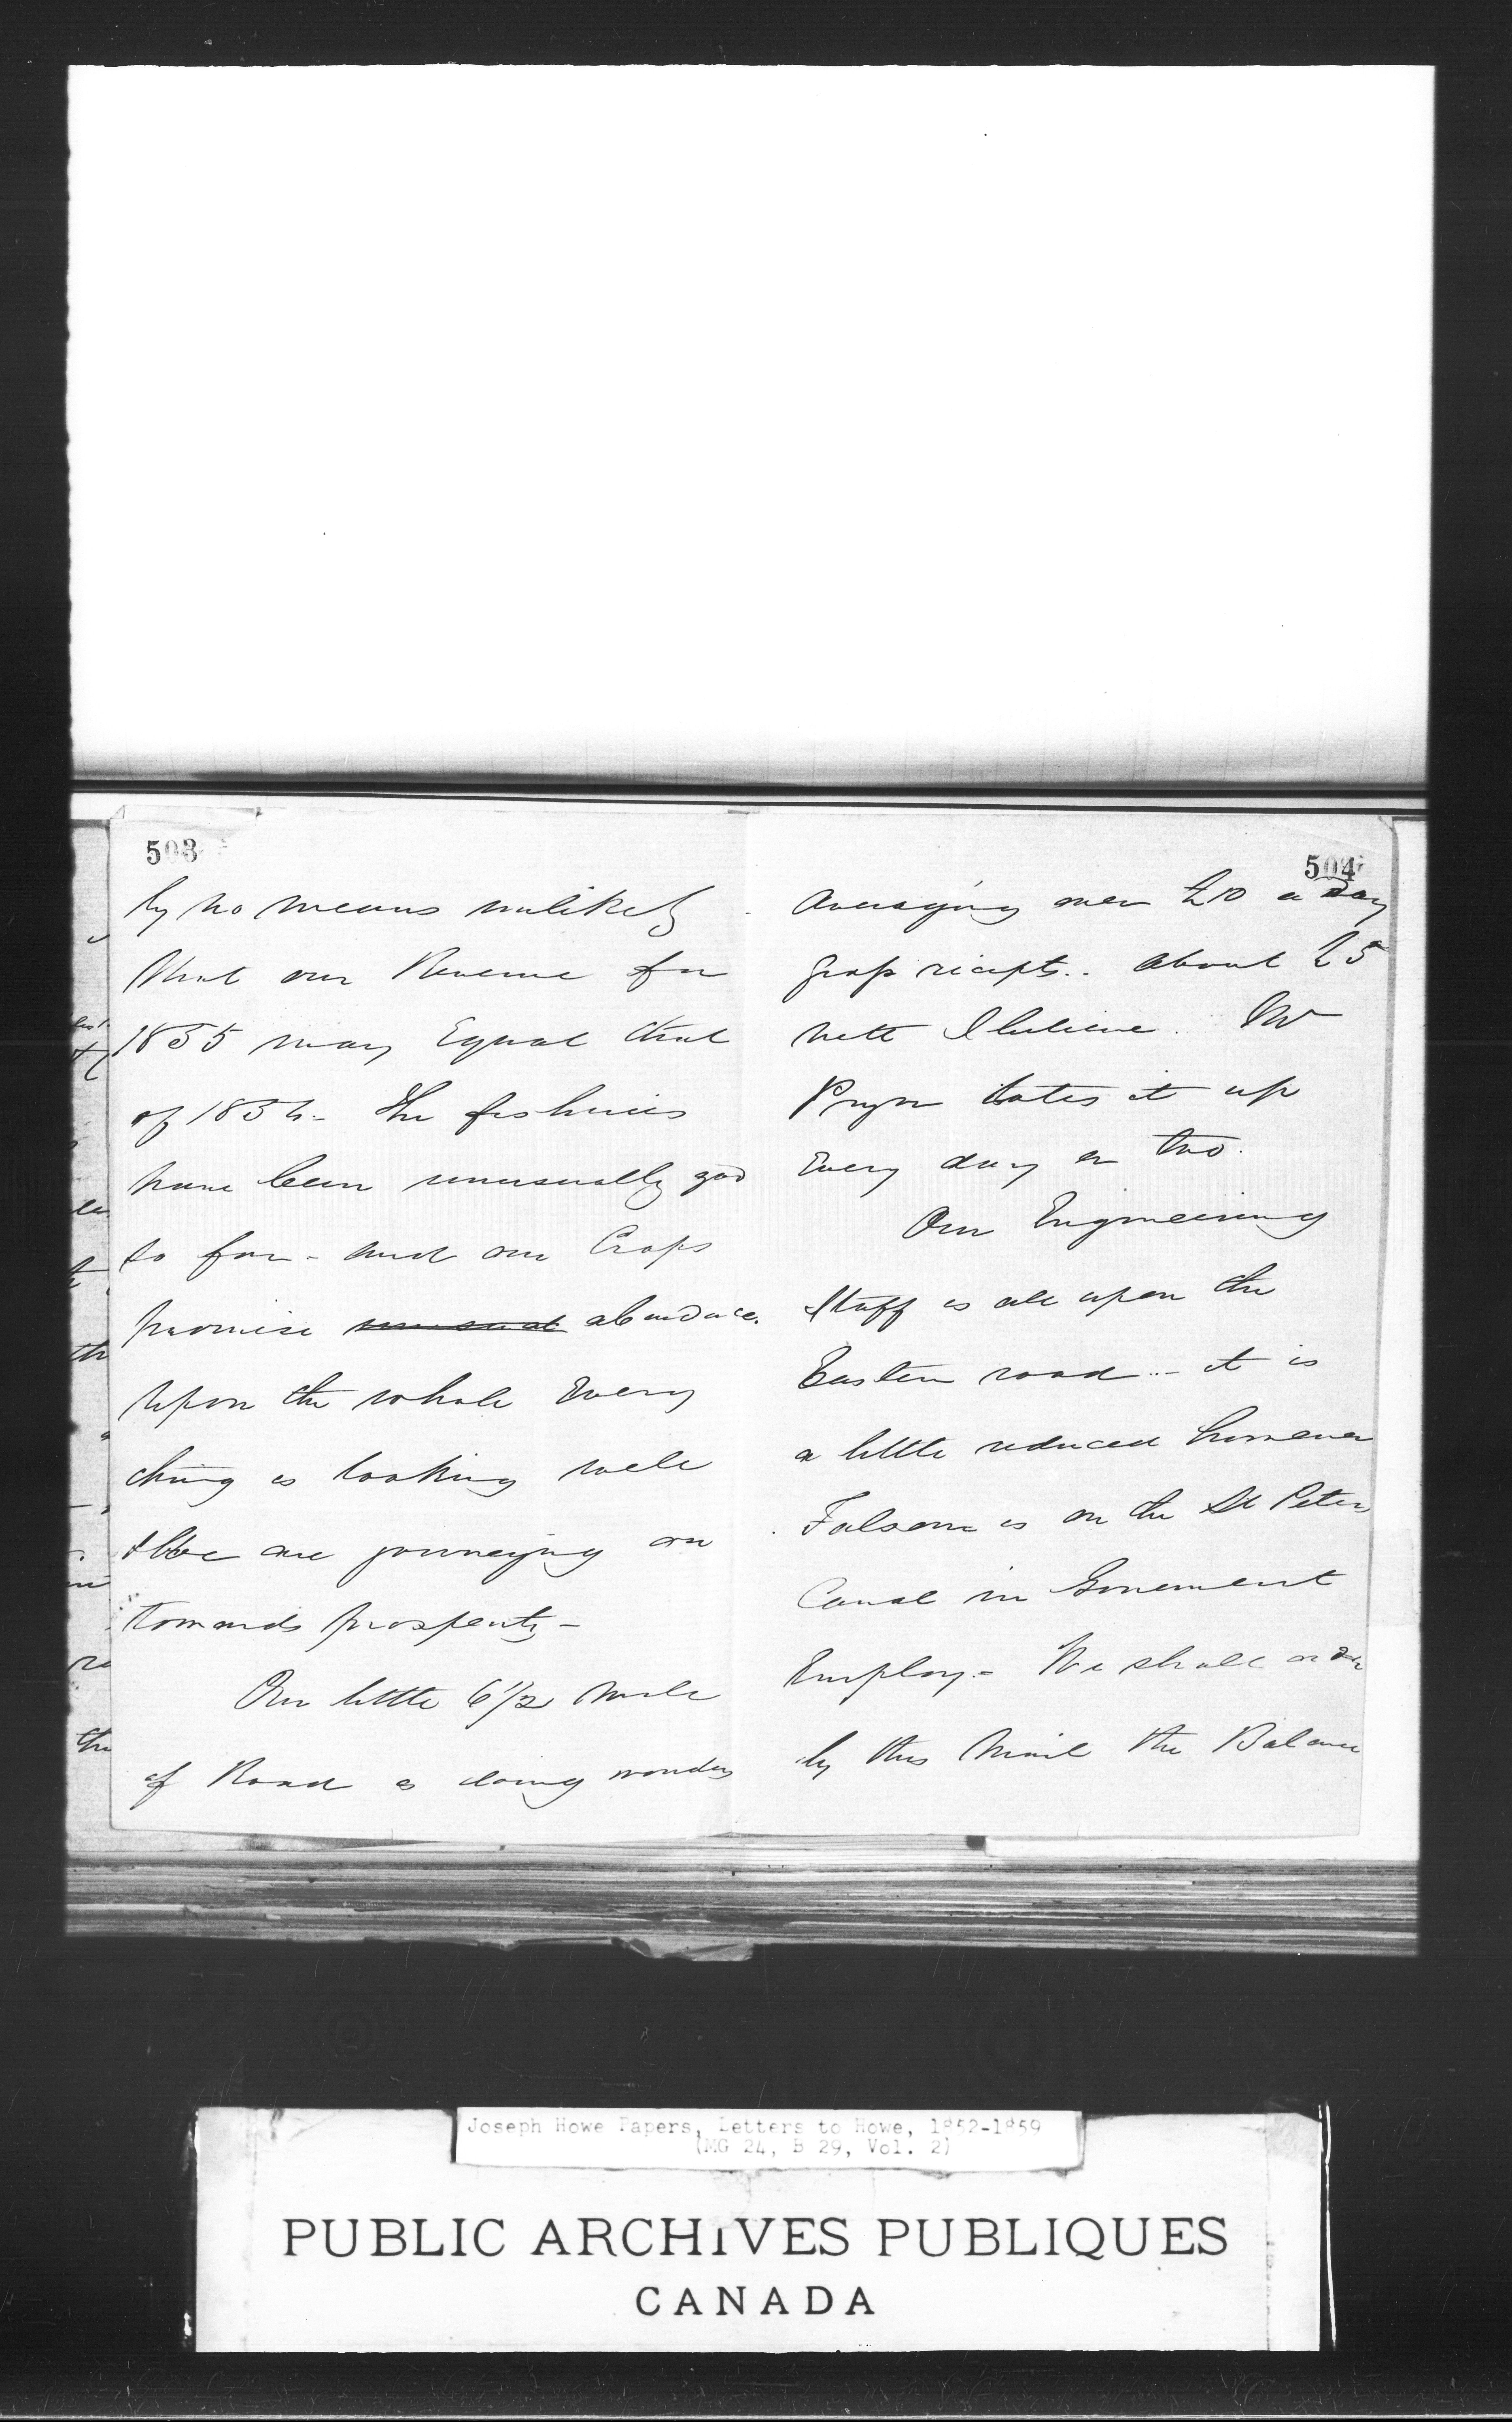 503
by no means unlikely
that our Revenue for
1855 may Equal that
of 1854 - The fisheries
have been unusually good
so far - and our Crops
promise unusual abundance.
Upon the whole Every
thing is looking well
& We are journeying on
towards prosperity -
Our little 6 1/2 Mile
of Road is doing wonders
504
Averaging over £10 a Day
gross receipts .. about £5
nett I believe. Mr
Pryor totes it up
Every day or two.
Our Engineering
Staff is all upon the
Eastern road .. - it is
a little reduced however
Folsom is on the St Peters
Canal in Goverment
Employ - We shall order
by this Mail the Balance
Joseph Howe Papers, Letters to Howe, 1852-1859
(MG 24, B 29, Vol. 2)
PUBLIC ARCHIVES PUBLIQUES
CANADA